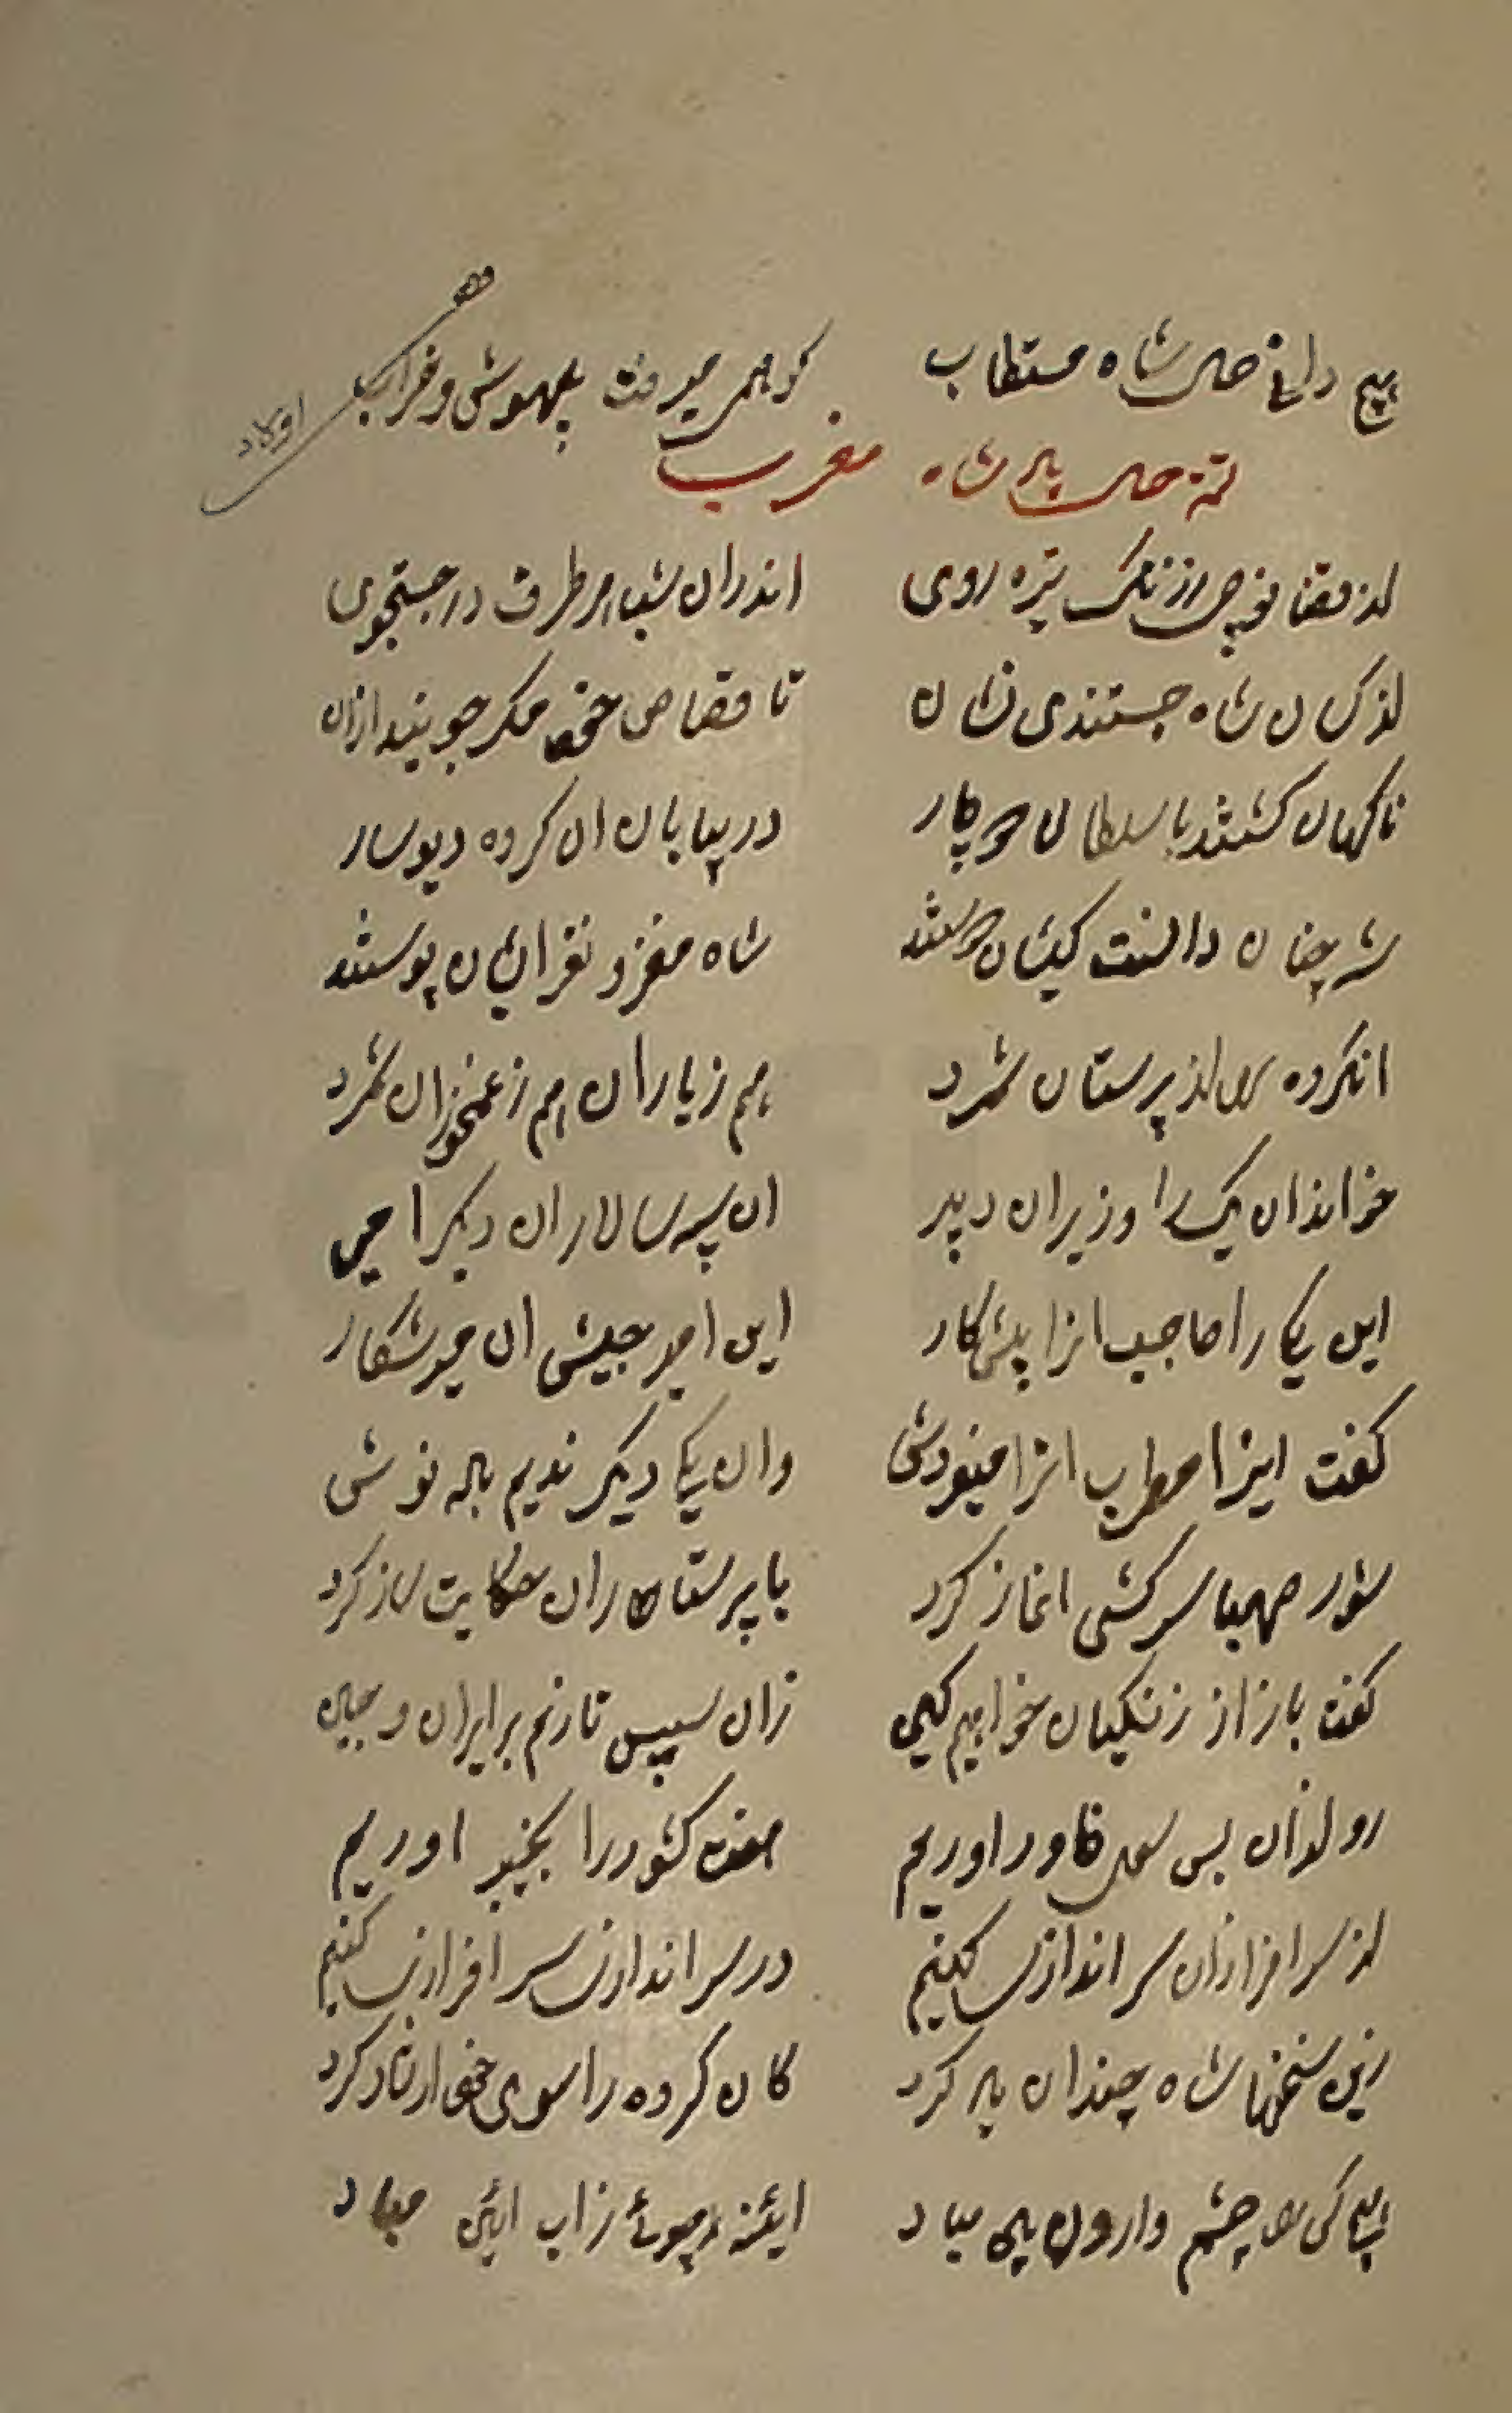 هیچ دانی حال شاه مستطاب کو همی میرفت بیهوش و خراب
تتمه حال پادشاه مغرب
از قضا فوجی ز زنگ تیره روی اندران شب هر طرف در جستجوی
از کسان شاه جستندی نشان تا قصاص خود مگر جویند ازان
ناگهان گشتند با سلطان دچار در بیابان ان گروه دیوسار
شه چنان دانست کیشان دوستند شاه مغز و نغز ایشان پوستند
انگروه را از پرستان شمرد هم ز یاران هم ز غمخوران شمرد
خواند ان یک را وزیر ان دبیر ان سپه سالار ان دیگر امیر
این یکی را حاجب انرا پیشکار این امیر جیش ان میر شکار
گفت اینرا مطرب انرا میفروش وان یکی دیگر ندیم باده نوش
شور صهبا سرکشی اغاز کرد با پرستاران حکایت ساز کرد
گفت باز از زنگیان خواهیم کین زان سپس تازیم بر ایران و چین
رو ازان پس سوی خاور اوریم هفت کشور را بچنبر اوریم
از سرافرازان سراندازی کنیم در سراندازی سرافرازی کنیم
زین سخنها شاه چندان یاد کرد کان گروه را سوی خود ارشاد کرد
کس را چشم وارون بین مباد ایئنه زاب این مباد